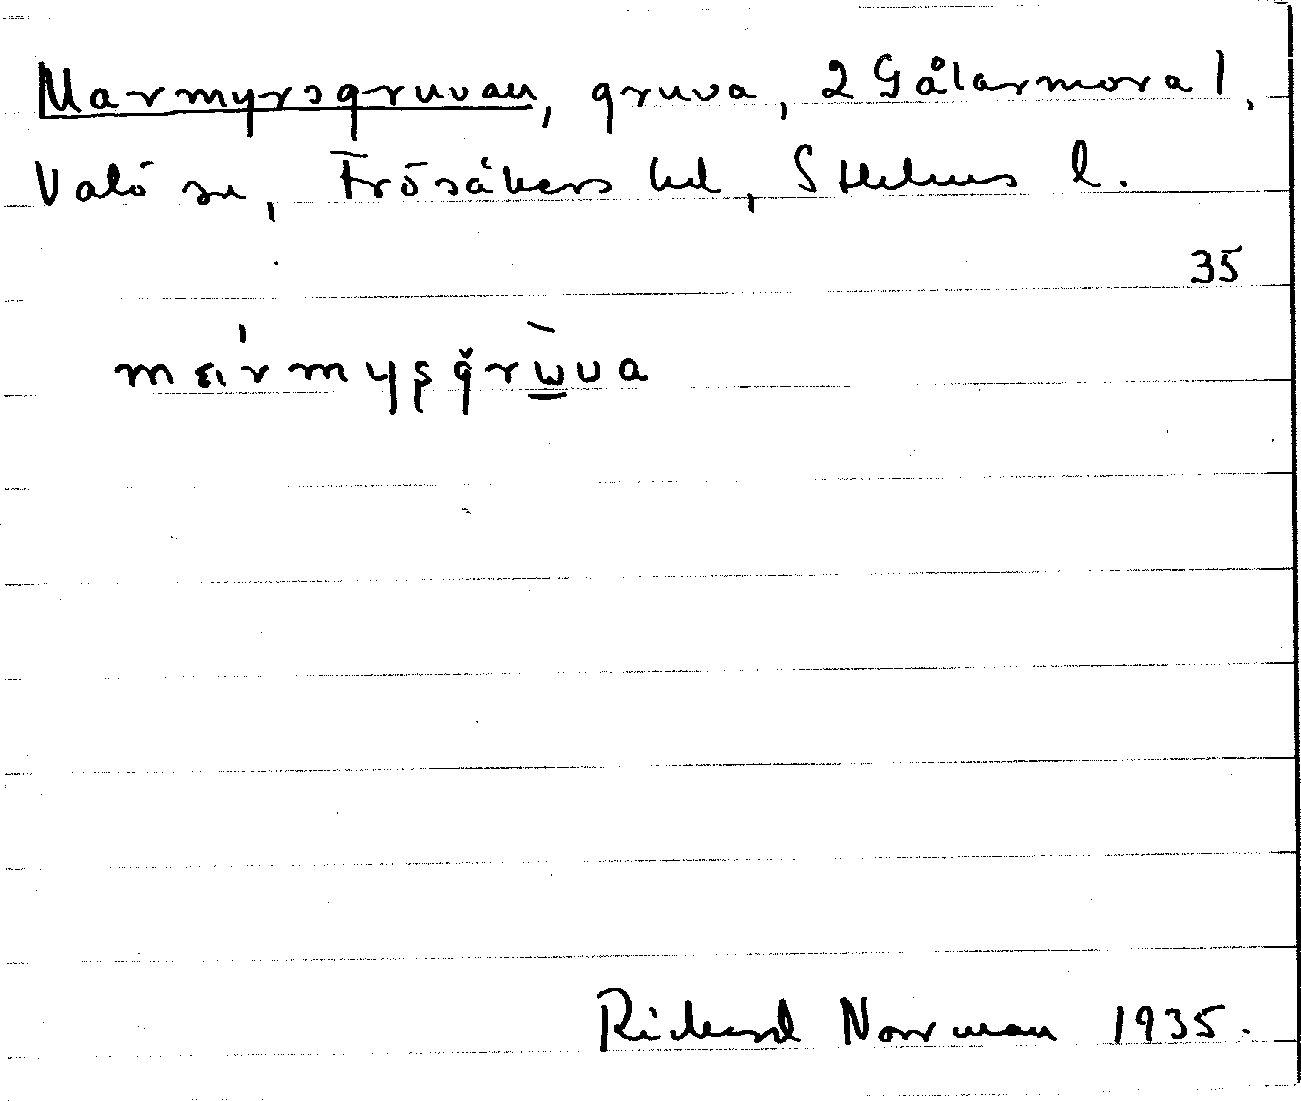 Marmyrsgruvan, gruva, 2 Gålarmora 1,
Valö sn, Frösåkers hd, Sthlms l.
35
Rickard Norrman 1935.